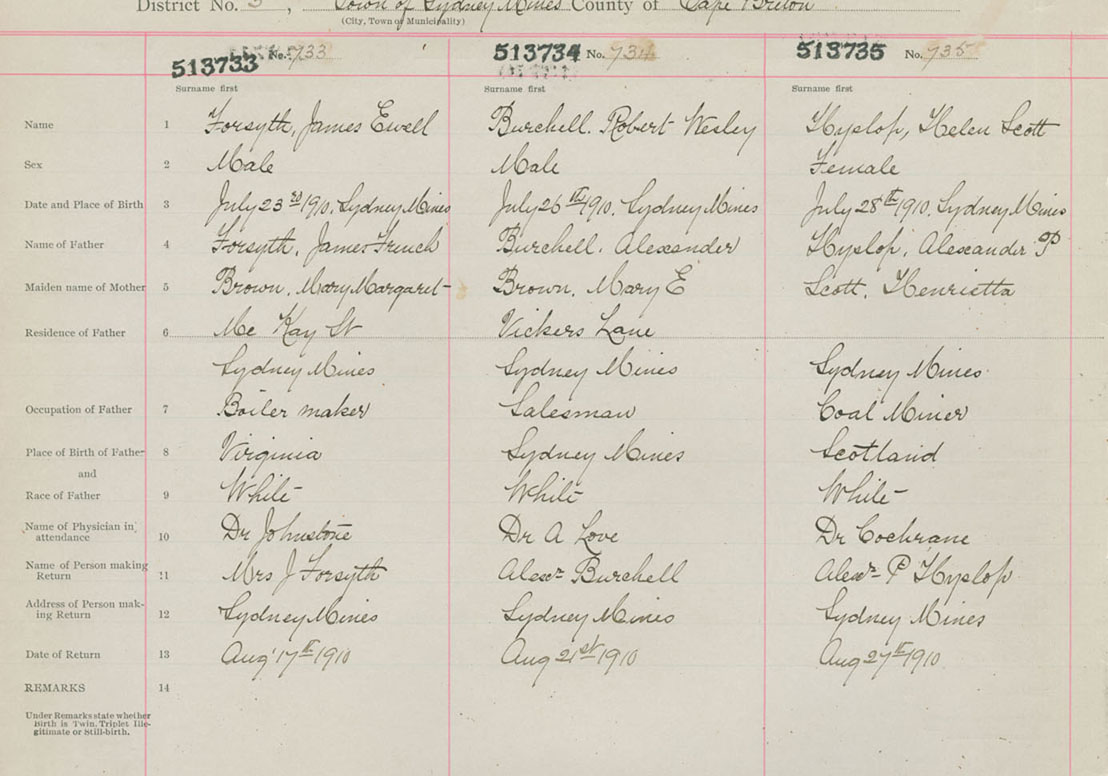 District No. 3, Town of Sydney Mines County of Cape Breton
(City, Town or Municipality)
513733 No. 733 513734 No. 734 513735 No. 735
Surname first Surname first Surname first
Name 1 Forsyth, James Ewell Burchell. Robert Wesley Hyslop, Helen Scott
Sex 2 Male Male Female
Date and Place of Birth 3 July 23rd 1910. Sydney Mines July 26th 1910. Sydney Mines July 28th 1910. Sydney Mines
Name of Father 4 Forsyth, James French Burchell. Alexander Hyslop, Alexander P
Maiden name of Mother 5 Brown. Mary Margaret Brown. Mary E Scott. Henrietta
Residence of Father 6 Mc Kay St Vickers Lane
Sydney Mines Sydney Mines Sydney Mines
Occupation of Father 7 Boiler maker Salesman Coal Miner
Place of Birth of Father 8 Virginia Sydney Mines Scotland
and
Race of Father 9 White White White
Name of Physician in
attendance 10 Dr Johnstone Dr A Love Dr Cochrane
Name of Person making
Return 11 Mrs J Forsyth Alexr Burchell Alexr P Hyslop
Address of Person mak-
ing Return 12 Sydney Mines Sydney Mines Sydney Mines
Date of Return 13 Aug 17th 1910 Aug 21st 1910 Aug 27th 1910
REMARKS 14
Under Remarks state whether
Birth is Twin, Triplet Ille-
gitimate or Still-birth.